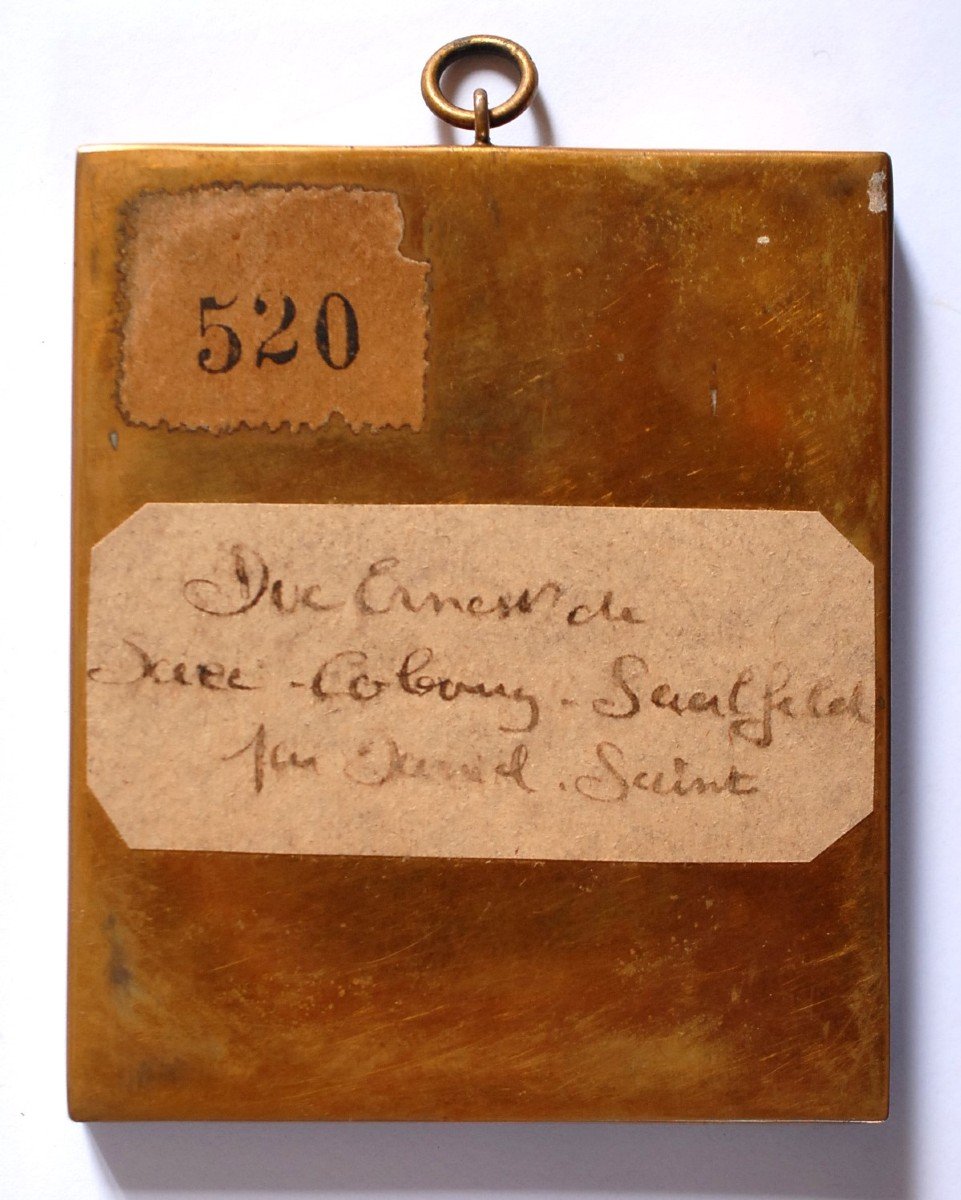 520
Duc Ernest de
Saxe-Cobourg-Saalfeld
par Daniel Saint